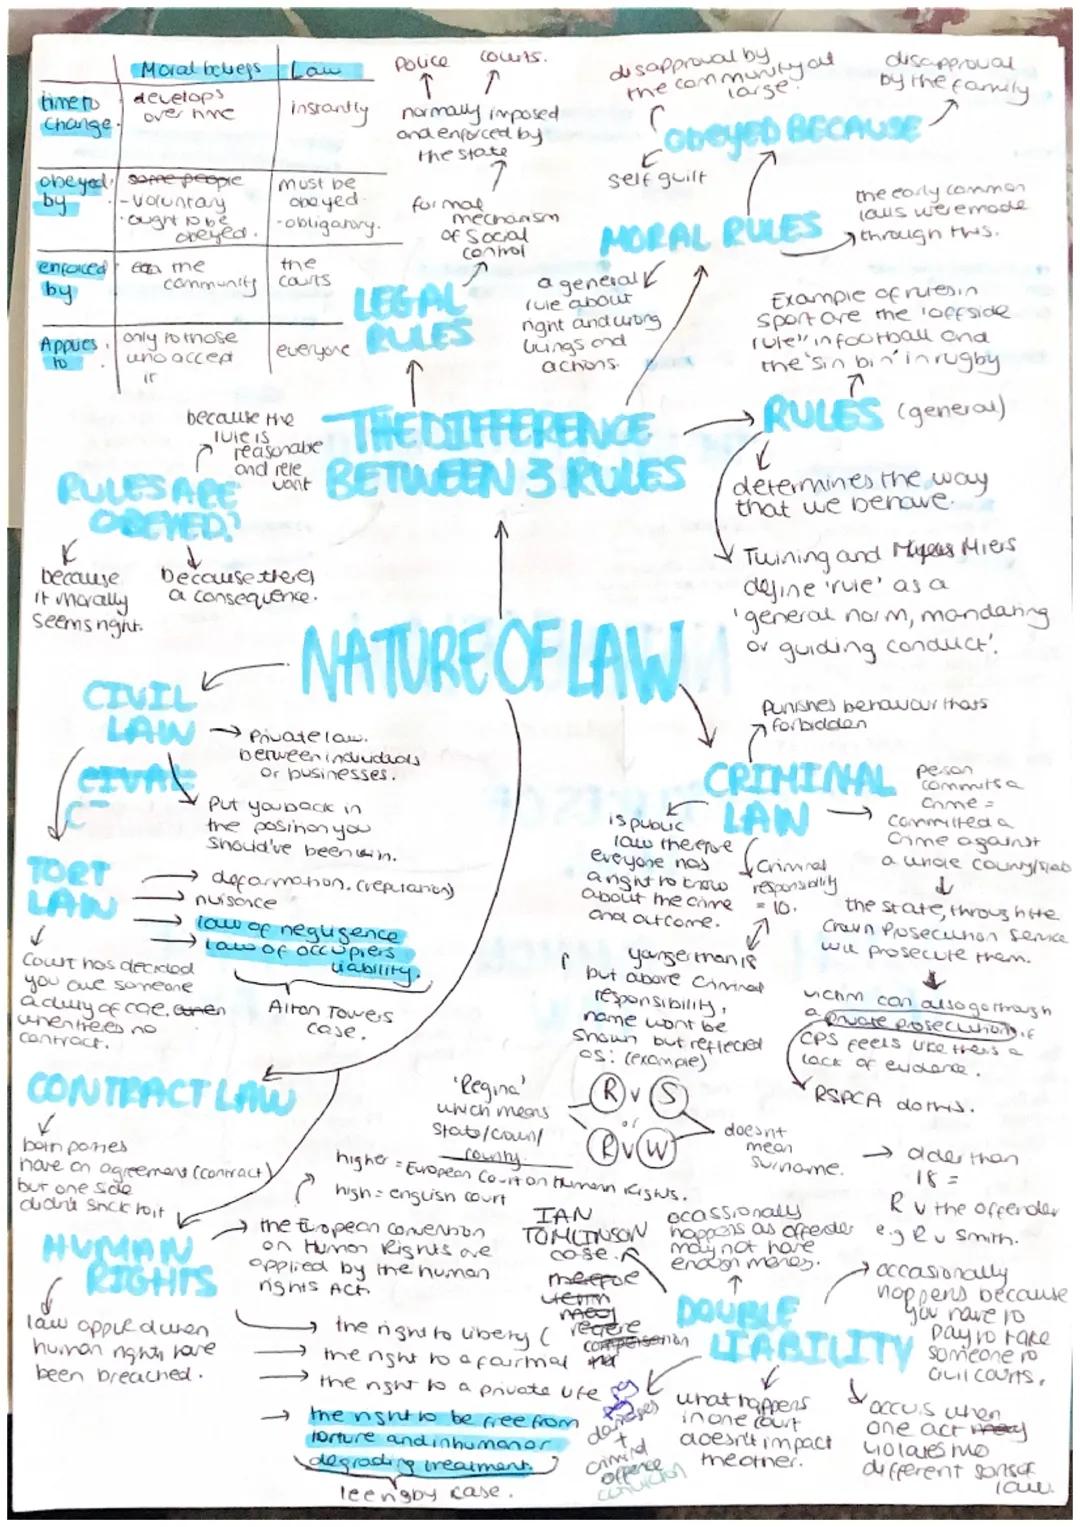 Moral beliefs
Law
time to
change.
develops
over time
instantly
obeyed
by
some people
-voluntary
·ought to be
obeyed.
must be
obeyed
-obligatory.
enforced
by
the
community
the
courts
Applies
to
only to those
who accept
it
everyone
Police courts.
normally imposed
and enforced by
the state
formal
mechanism
of social
control
LEGAL
RULES
disapproval by
the community at
large.
disapproval
by the family
OBEYED BECAUSE
self guilt
MORAL RULES
the early common
laws were made
through this.
a general
rule about
right and wrong
beings and
actions.
Example of rules in
sport are the 'offside
rule" in football and
the 'sin bin' in rugby
RULES (general)
determines the way
that we behave.
Twining and Miers
define 'rule' as a
'general norm, mandating
or guiding conduct'.
THE DIFFERENCE
BETWEEN 3 RULES
because the
rule is
reasonable
and rele
vant
RULES ARE
OBEYED?
because
it morally
seems right.
because theres
a consequence.
NATURE OF LAW
CIVIL
LAW
Private law.
between individuals
or businesses.
CIVAE
C
Put you back in
the position you
should've been in.
TORT
LAW
defarmation. (reputation)
nuisance
law of negligence
law of occupiers
liability.
Alton Towers
case.
Court has decided
you owe someone
a duty of care,
when theres no
contract.
CONTRACT LAW
both parties
have an agreement (contract)
but one side
didn't stick to it
HUMAN
RIGHTS
law applied when
human rights have
been breached.
higher = European Court on Human Rights.
high = english court
the European convention
on Human Rights are
applied by the human
rights Act
the right to liberty (
the right to a fair trial
the right to a private life
the right to be free from
torture and inhuman or
degrading treatment.
lee rigby case.
Punishes behaviour thats
forbidden
CRIMINAL
LAW
person
commits a
crime =
committed a
crime against
a whole county/state
the state, through the
crown Prosecution service
will prosecute them.
victim can also go through
a private prosecution if
CPS feels like theres a
lack of evidence.
RSPCA do this.
is public
law therefore
everyone has
a right to know
about the crime
and outcome.
Criminal
responsibility
= 10.
younger than 18
but above criminal
responsibility,
name wont be
shown but reflected
as: (example)
R v S
or
R v W
'Regina'
which means
state/crown/
county.
doesn't
mean
surname.
older than
18 =
R v the offender
e.g R v Smith.
IAN
TOMLINSON
case.
ocassionally
happens as offender
may not have
enough money.
DOUBLE
LIABILITY
occasionally
happens because
you have to
pay to take
someone to
civil courts.
occurs when
one act
violates two
different sorts of
law.
what happens
in one court
doesn't impact
the other.
damages
+
criminal
offence
conviction